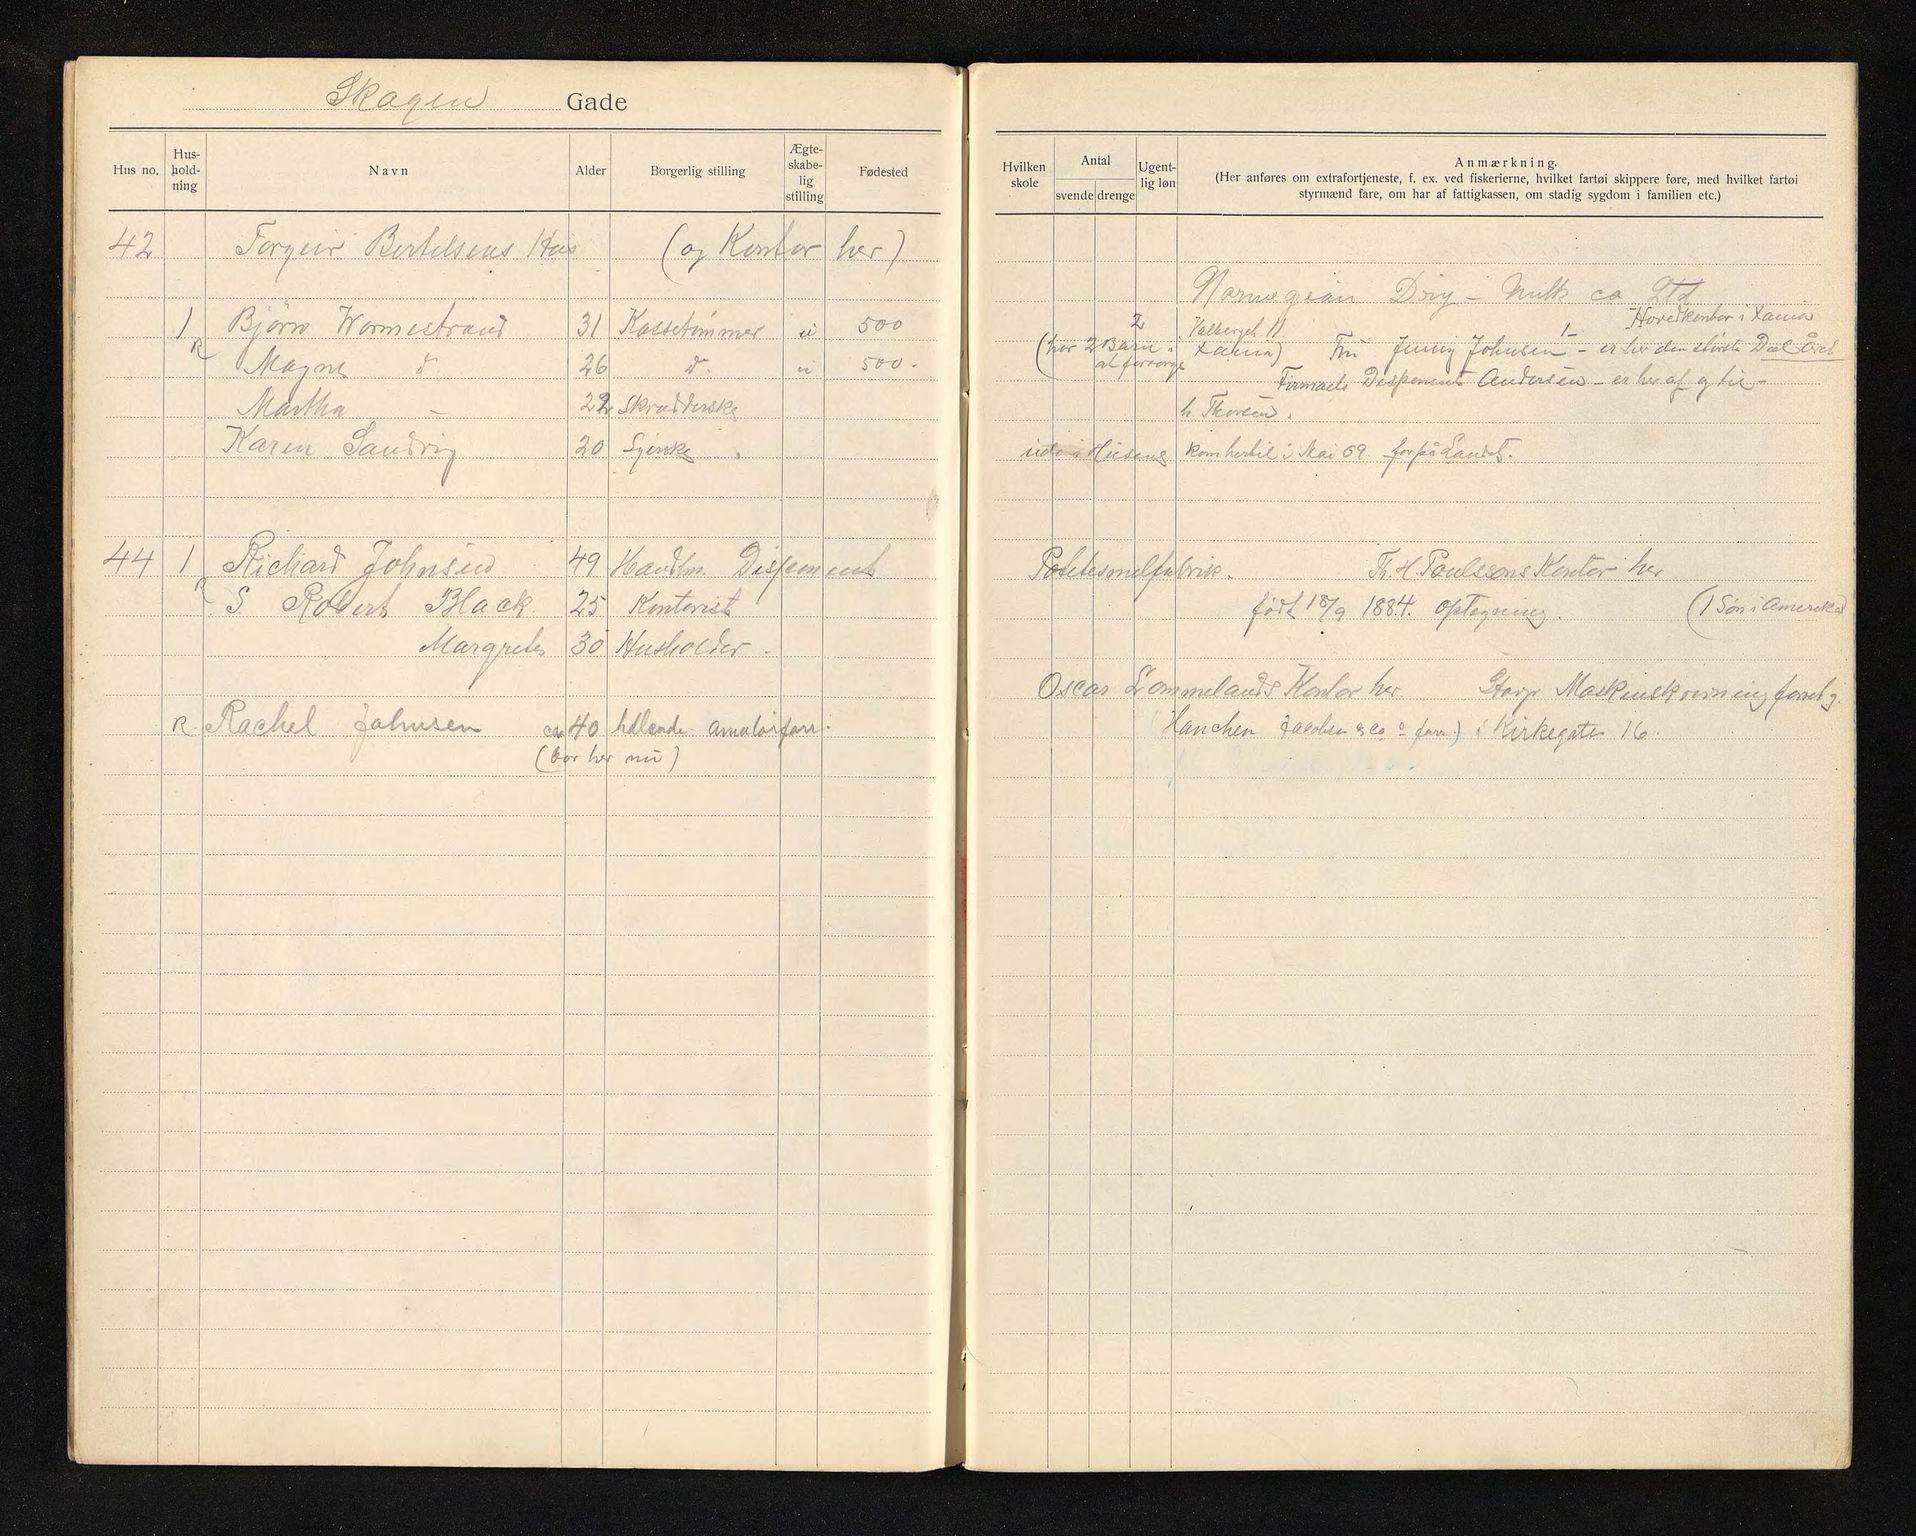 Skagen Gade
Hus no. Hus-holdning Navn Alder Borgerlig stilling Ægte-skabe-lig stilling Fødested
42 Torgeir Bertelsens Hus (og Kontor her)
1 Bjørn Wormestrand 31 Kassetømmer u 500
R Magne d. 26 d. u 500.
Martha – 22 Skrædderske
Karen Sandvig 20 Syerske
44 1 Richard Johnsen 49 Handlm. Disponent
R S Robert Black 25 Kontorist
Margrete 30 Husholder.
R Rachel Johnsen ca 40 hdlende amatørforr.
(bor her nu)
Hvilken skole Antal svende drenge Ugent-lig løn Anmærkning.
(Her anføres om extrafortjeneste, f. ex. ved fiskerierne, hvilket fartøi skippere føre, med hvilket fartøi
styrmænd fare, om har af fattigkassen, om stadig sygdom i familien etc.)
Norwegian Dry-Milk co Ltd
Hovedkontor i Xania
2 Valberget 1)
(har 2 Barn i Xania) Fru Jenny Johnsen – er her den største Deel Året
at forsørge Firmaets Disponent Andersen – er her af og til –
h Thorsen.
ude i Husene kom hertil i Mai 09 fra Landet.
Potetesmelfabrik. Th. H. Poulssons Kontor her
født 18/9 1884. Optegning. (1 Søn i Amerika)
Oscar Lommelands Kontor her. Stavgr Maskinskrivningforretg.
Hanchen Jacobsen & co forr.) i Kirkegate 16.